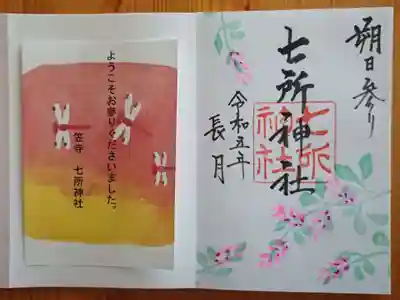 朔日参り
七所神社
七所
神社
令和五年
長月
ようこそお参りくださいました。
笠寺 七所神社